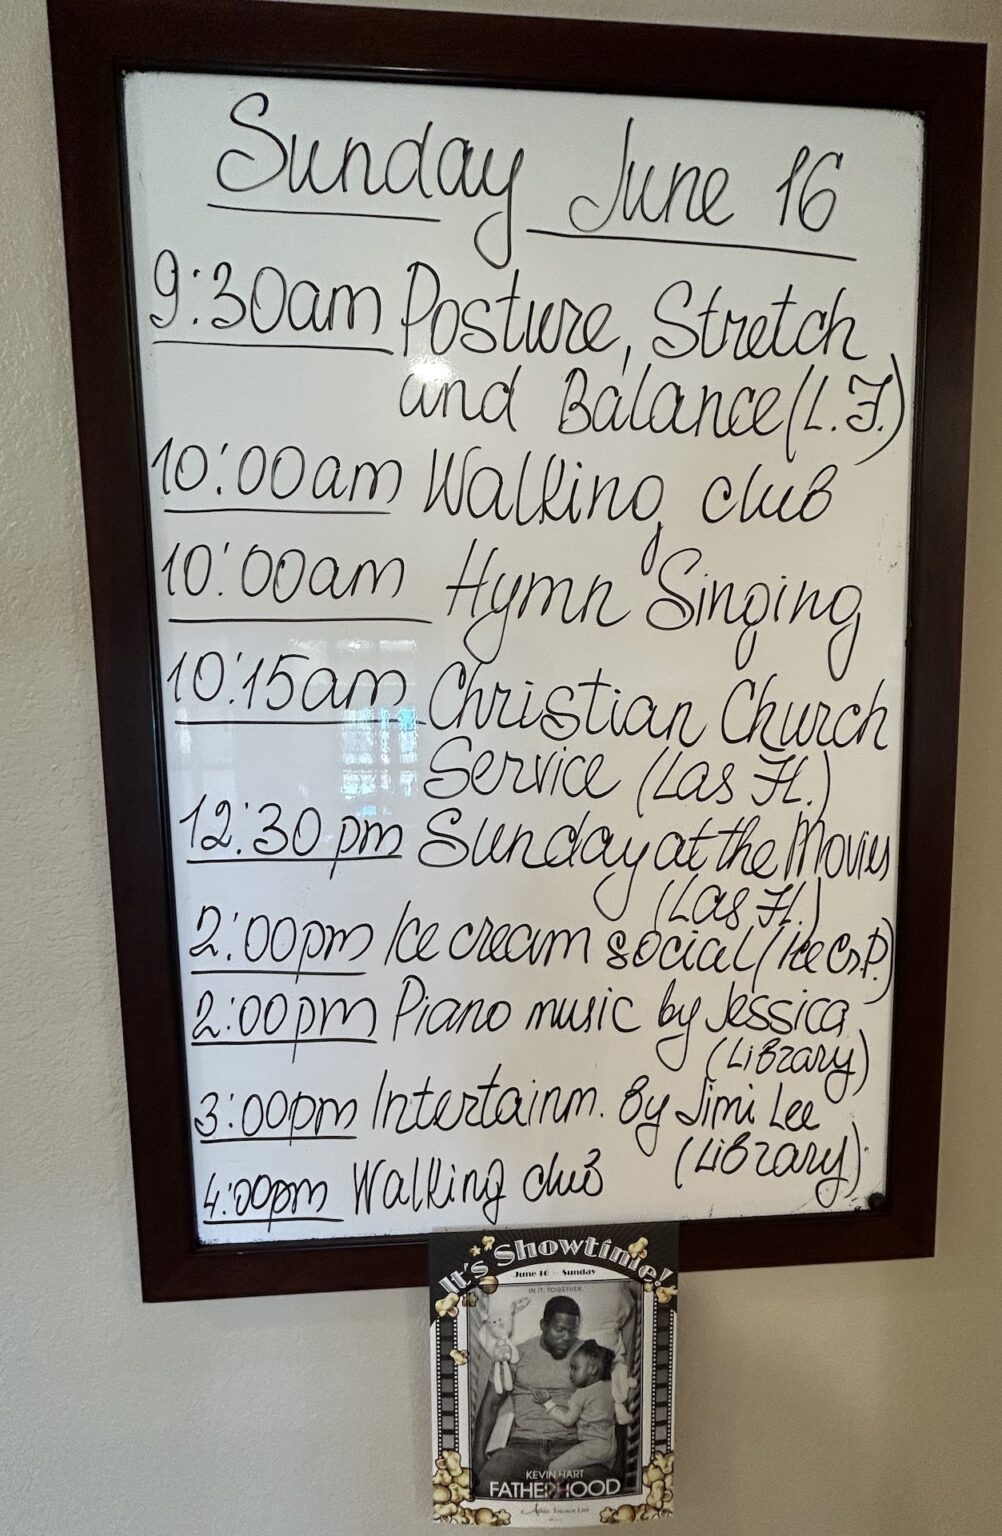 Sunday June 16
9:30am Posture, Stretch
and Balance (L.F.)
10:00am Walking club
10:00am Hymn Singing
10:15am Christian Church
Service (Las Fl.)
12:30pm Sunday at the Movies
(Las Fl.)
2:00pm Ice cream social (Ice Cr.P.)
2:00pm Piano music by Jessica
(Library)
3:00pm Intertainm. By Jimi Lee
(Library).
4:00pm Walking club
It's Showtime!
June 16 - Sunday
IN IT. TOGETHER.
KEVIN HART
FATHERHOOD